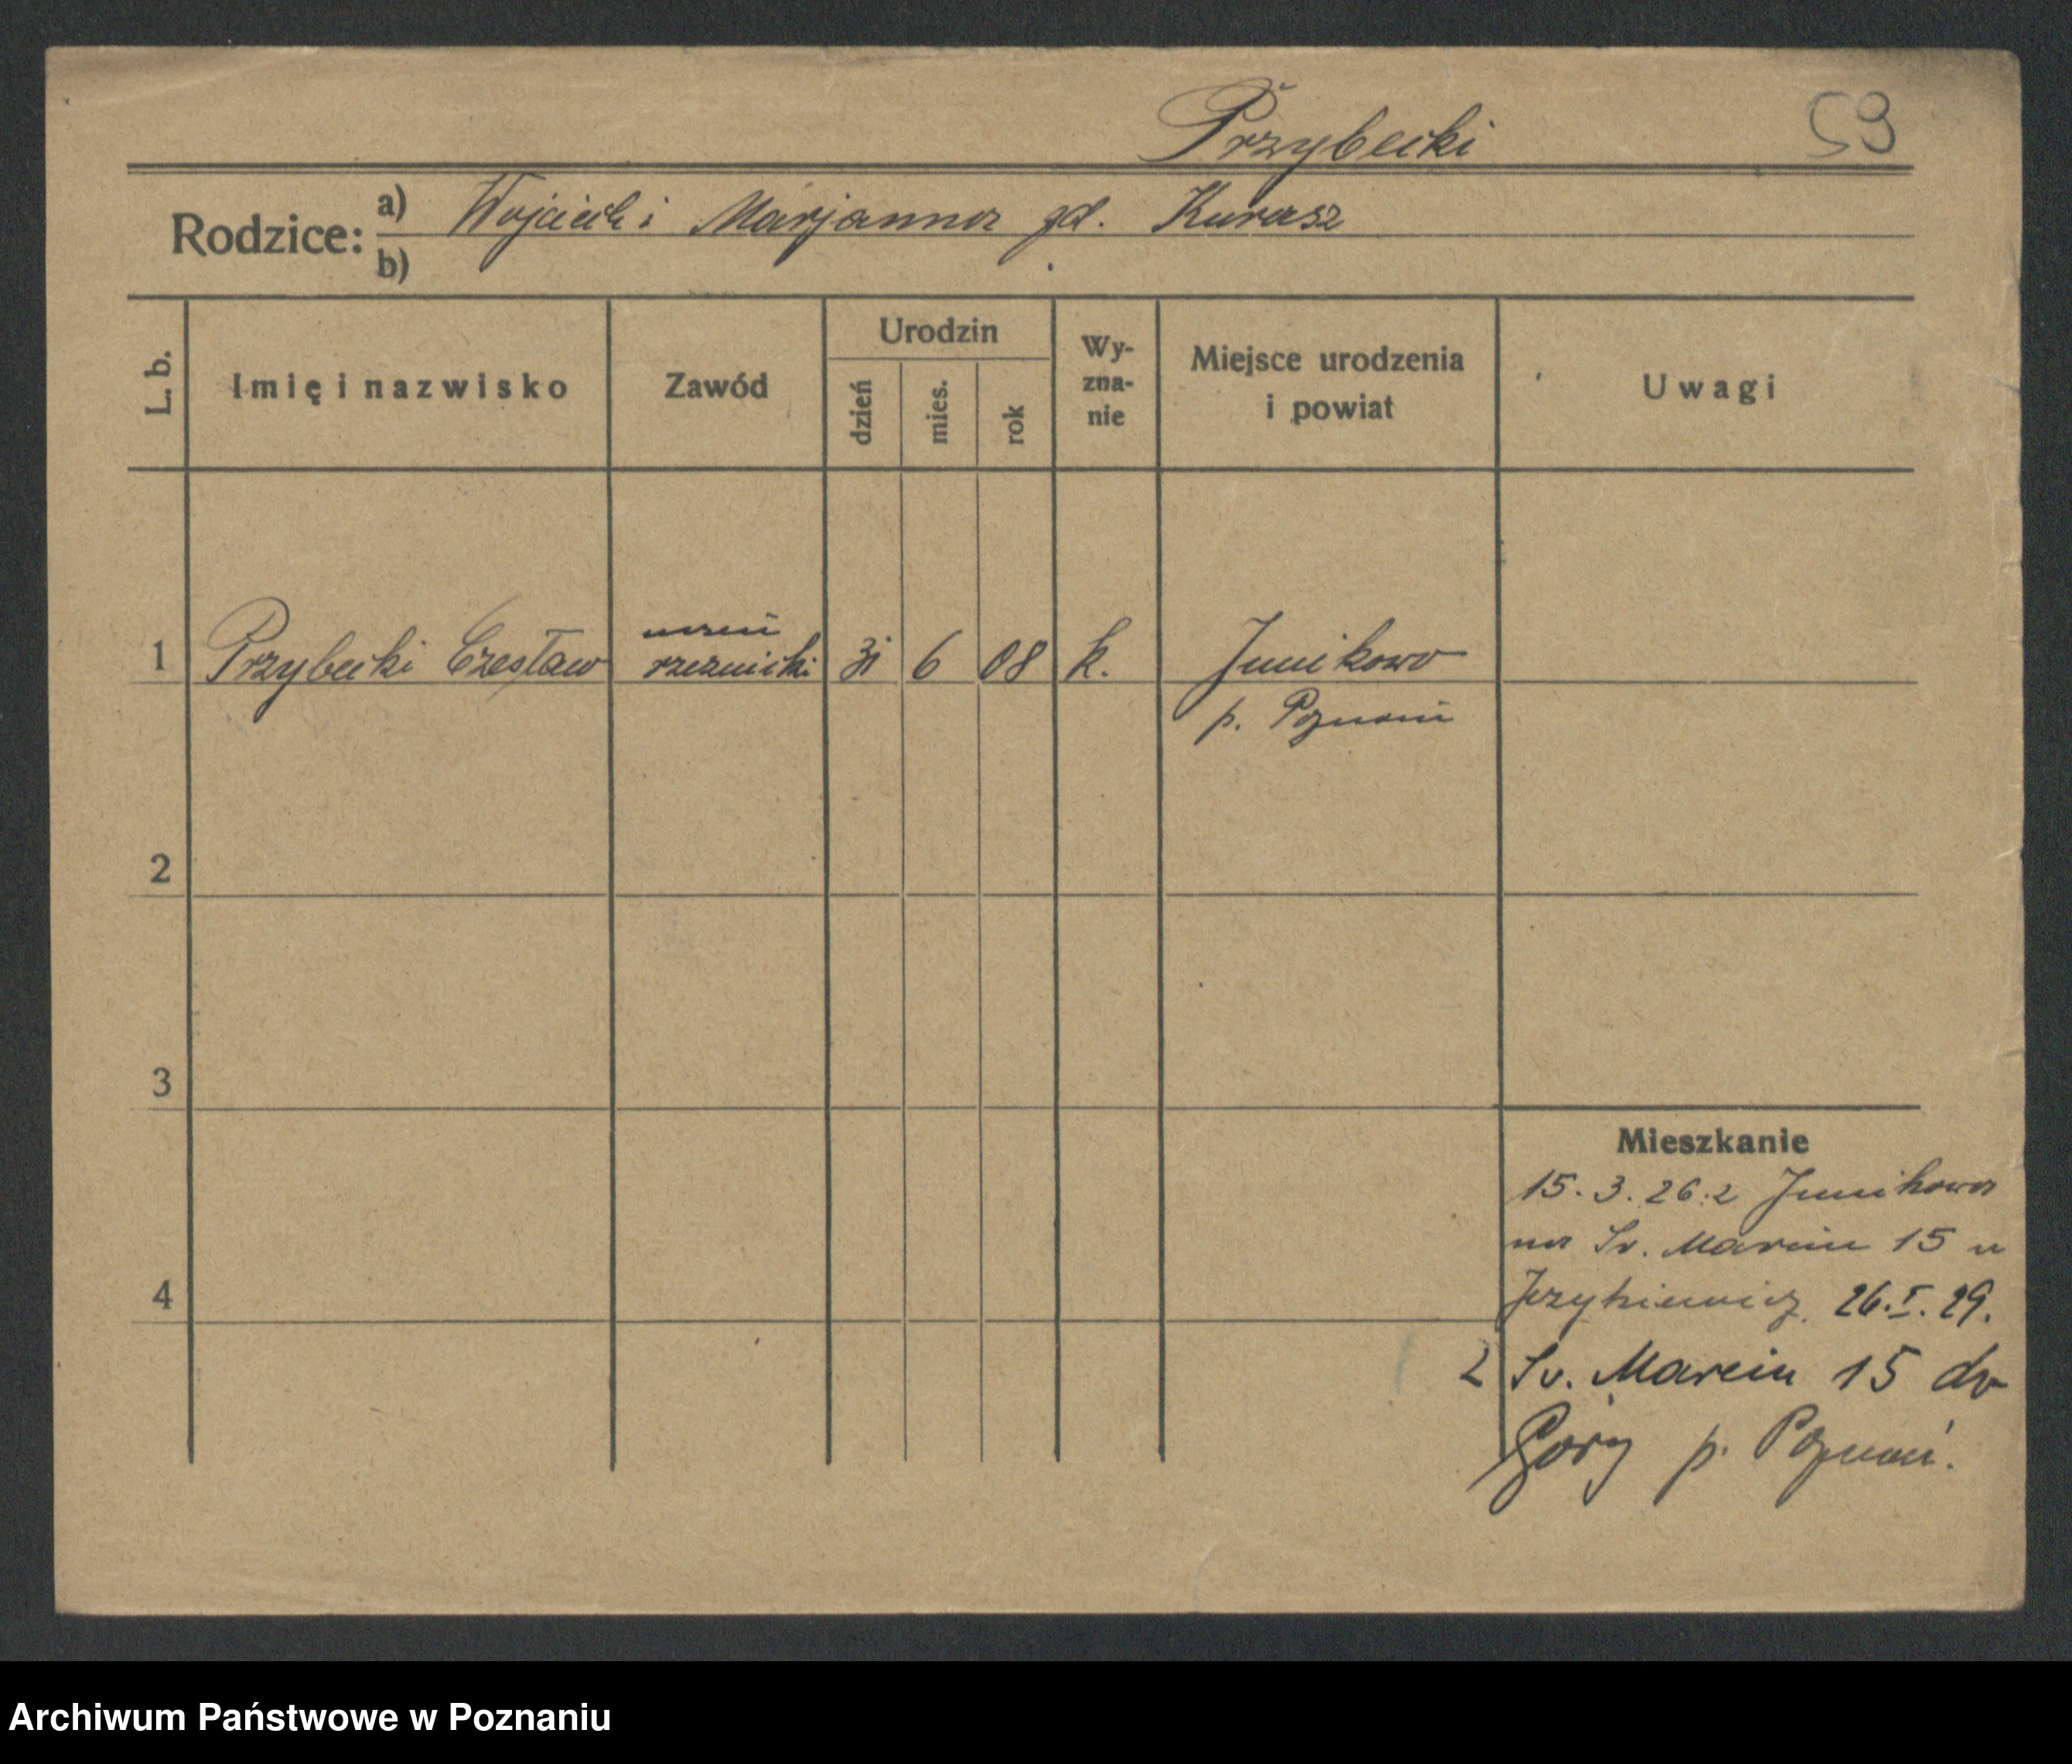 Przybecki 59
Rodzice: a) Wojciech i Marjanna gd. Kurasz
b)
L. b. Imię i nazwisko Zawód Urodzin dzień mies. rok Wy-zna-nie Miejsce urodzenia i powiat Uwagi
uczeń
1 Przybecki Czesław rzeznicki 31 6 08 k. Junikowo
p. Poznań
2
3
Mieszkanie
15.3.26. z Junikowa
na Św. Marcin 15 u
4
Jezykiewicz 26.I.29.
z Św. Marcin 15 do
Góry p. Poznań.
Archiwum Państwowe w Poznaniu